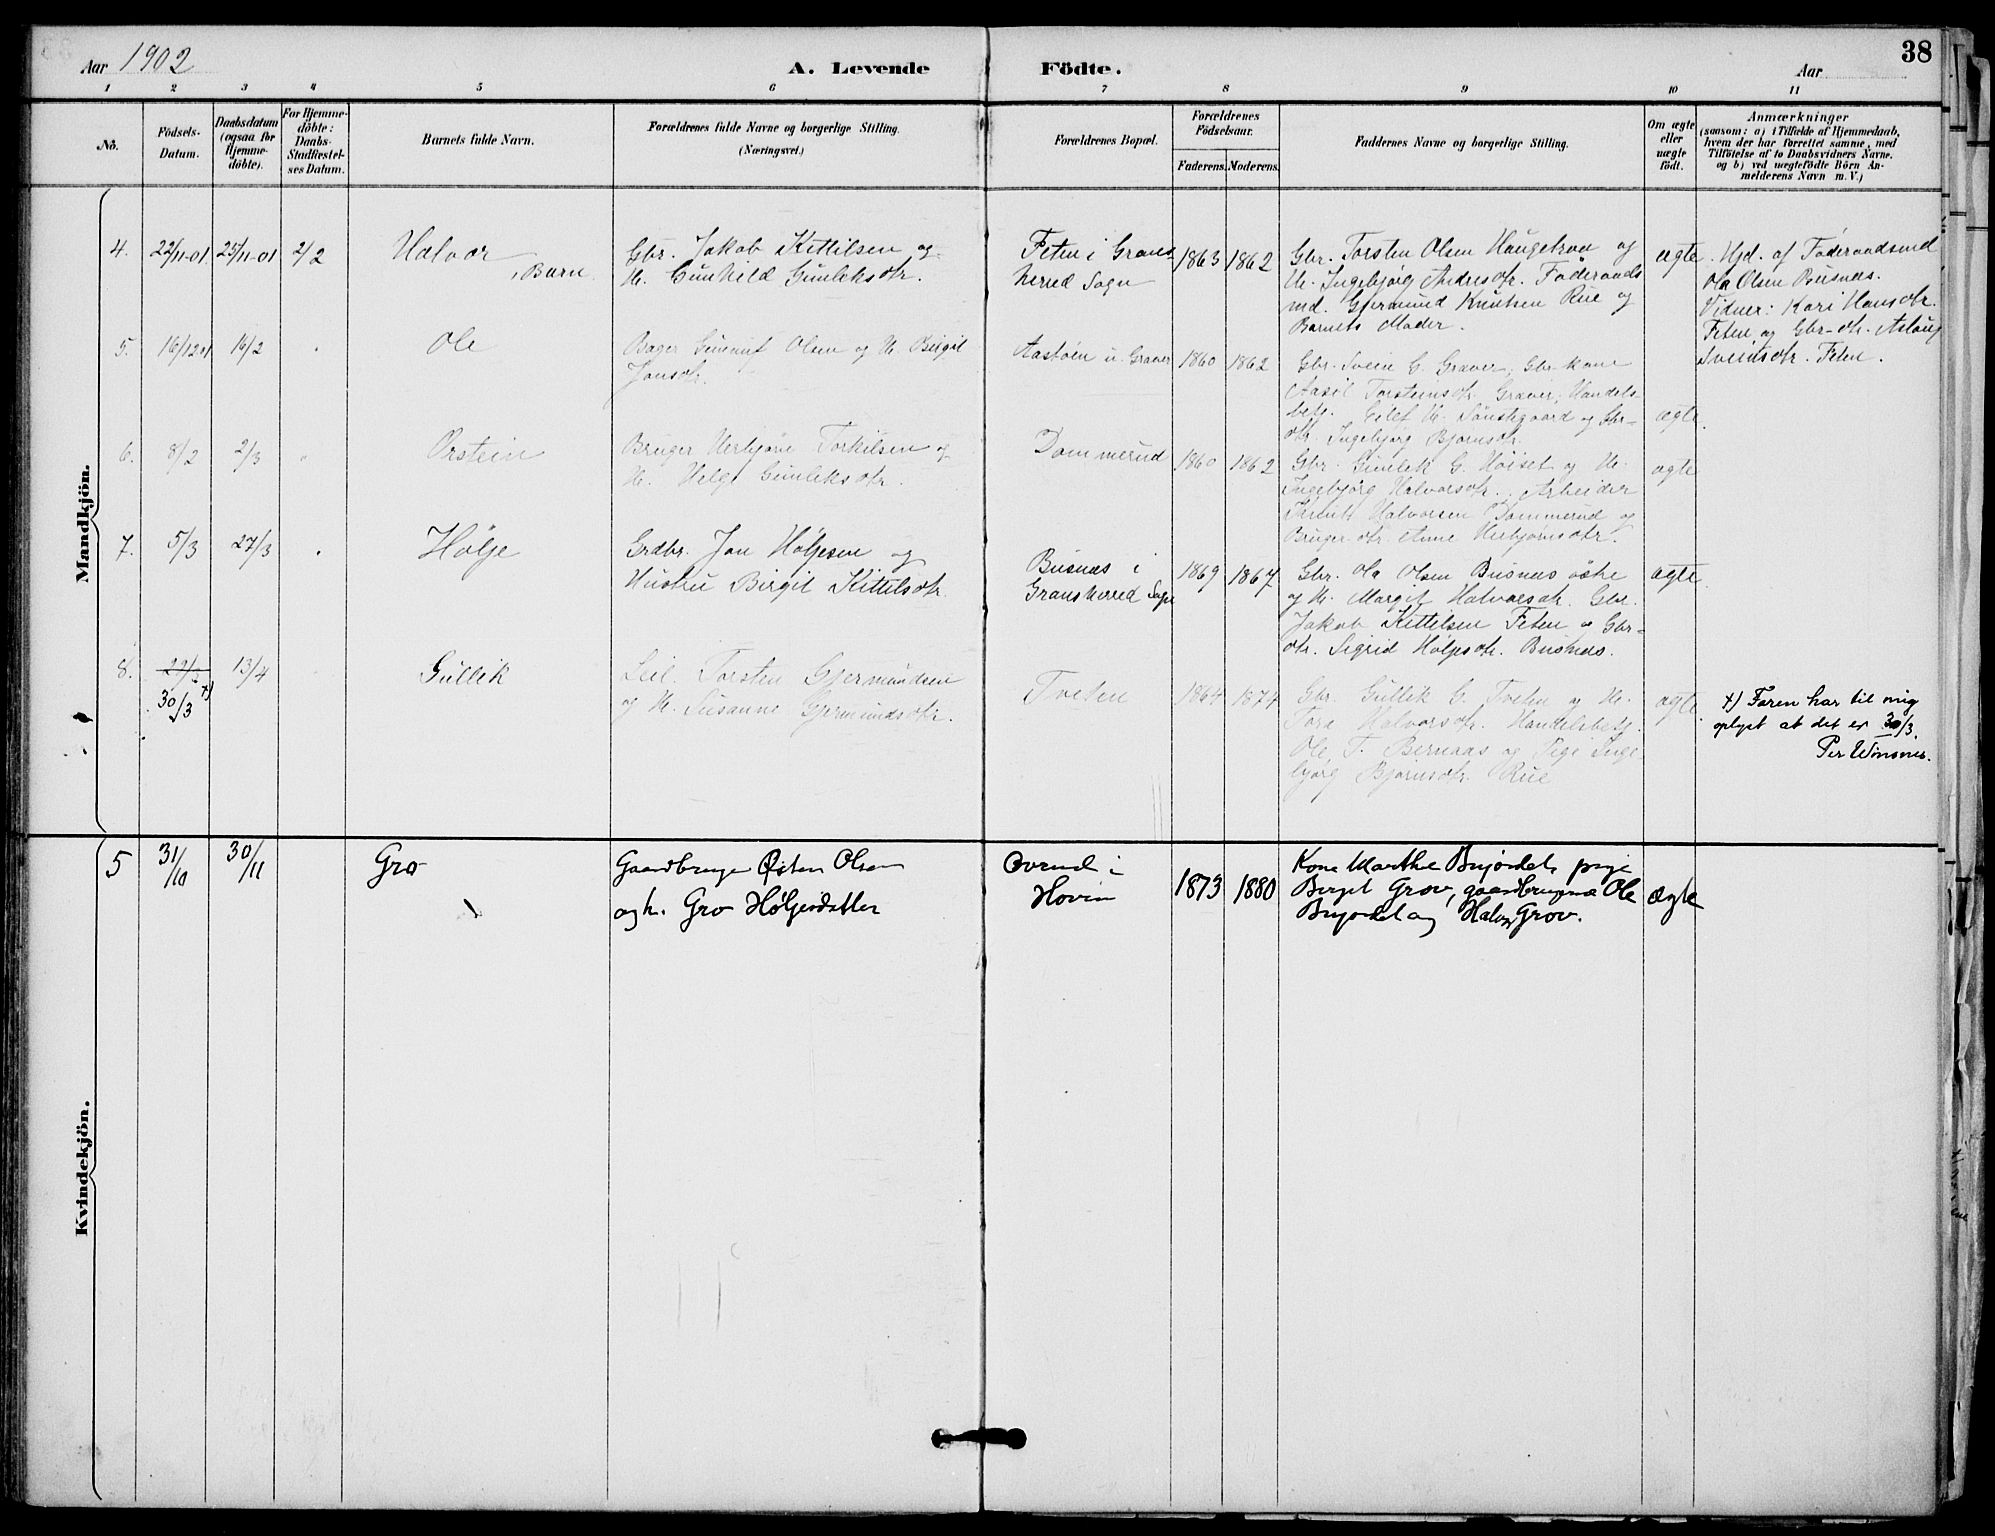 38
Aar 1902
A. Levende Födte.
Aar
1 2 3 4 5 6 7 8 9 10 11
No.
Födsels-
Datum.
Daabsdatum
(ogsaa for
Hjemme-
döbte).
For Hjemme-
döbte:
Daabs-
Stadfæstel-
ses Datum.
Barnets fulde Navn.
Forældrenes fulde Navne og borgerlige Stilling.
(Næringsvei.)
Forældrenes Bopæl.
Forældrenes
Födselsaar.
Faderens. Moderens.
Faddernes Navne og borgerlige Stilling.
Om ægte
eller
uægte
födt.
Anmærkninger
(saasom: a) i Tilfælde af Hjemmedaab,
hvem der har forrettet samme, med
Tilföielse af to Daabsvidners Navne.
og b) ved uægtefödte Börn An-
melderens Navn m. V.)
Mandkjön.
4. 22/11-01. 25/11-01 2/2
Halvor
, Barn
Gbr. Jakob Kittilsen og
H. Gunhild Gunleksdtr.
Feten i Grans
herred Sogn
1863 1862
Gbr. Torsten Olsen Haugetraa og
H. Ingebjørg Andresdtr. Føderaads
md. Gjermund Knutsen Rue og
Barnets Moder.
ægte
Hjd. af Føderaadsmd
Ola Olsen Busnæs.
Vidner: Kari Hansdtr.
Feten og Gbr-dtr. Aslaug
Sveinsdtr. Feten.
5. 16/12 01 16/2
Ole
Bager Gunnuf Olsen og H. Birgit
Jonsdtr.
Aastøen u. Graver
1860 1862
Gbr. Svein G. Graver, Gbr-kone
Aasil Torsteinsdtr. Graver, Handels
betj. Eilef H. Sønstegaard og Gbr-
dtr. Ingebjørg Bjørnsdtr.
ægte.
6. 8/2 2/3 "
Ørstein
Bruger Herbjørn Torkilsen og
H. Helge Gunleksdtr.
Dommerud
1860 1862
Gbr. Gunlek G. Høiset og H.
Ingebjørg Halvorsdtr. Arbeider
Knut Halvorsen Dommerud og
Bruger-dtr. Anne Herbjørnsdtr.
ægte
7. 5/3 27/3
Hølje
Grdbr. Jon Høljesen og
Hustru Birgit Kittilsdtr.
Busnæs i
Gransherred Sogn
1869 1867
Gbr. Ola Olsen Busnæs østre
og H. Margit Halvorsdtr. Gbr.
Jakob Kittilsen Feten og Gbr-
dtr. Sigrid Høljesdtr. Busnæs.
ægte.
8. 13/4
30/3 +)
Gullik
Leil. Torsten Gjermundsen
og H. Susanne Gjermundsdtr.
Tveten
1864 1874
Gbr. Gullek G. Tveten og H.
Tore Halvorsdtr. Handelsbetj.
Ole T. Bernaas og Pige Inge-
bjørg Bjørnsdtr. Rue
ægte
+) Faren har til mig
oplyst at det er 30/3.
Per Winsnes.
Kvindekjön.
5 31/10 30/11
Gro
Gaardbruger Østen Olsen
og h. Gro Høljesdatter
Ovrud i
Hovin
1873 1880
Kone Marthe Bujordet, pige
Birgit Grov, gaardbrugerne Ole
Bujordet og Halvor Grov.
Ægte